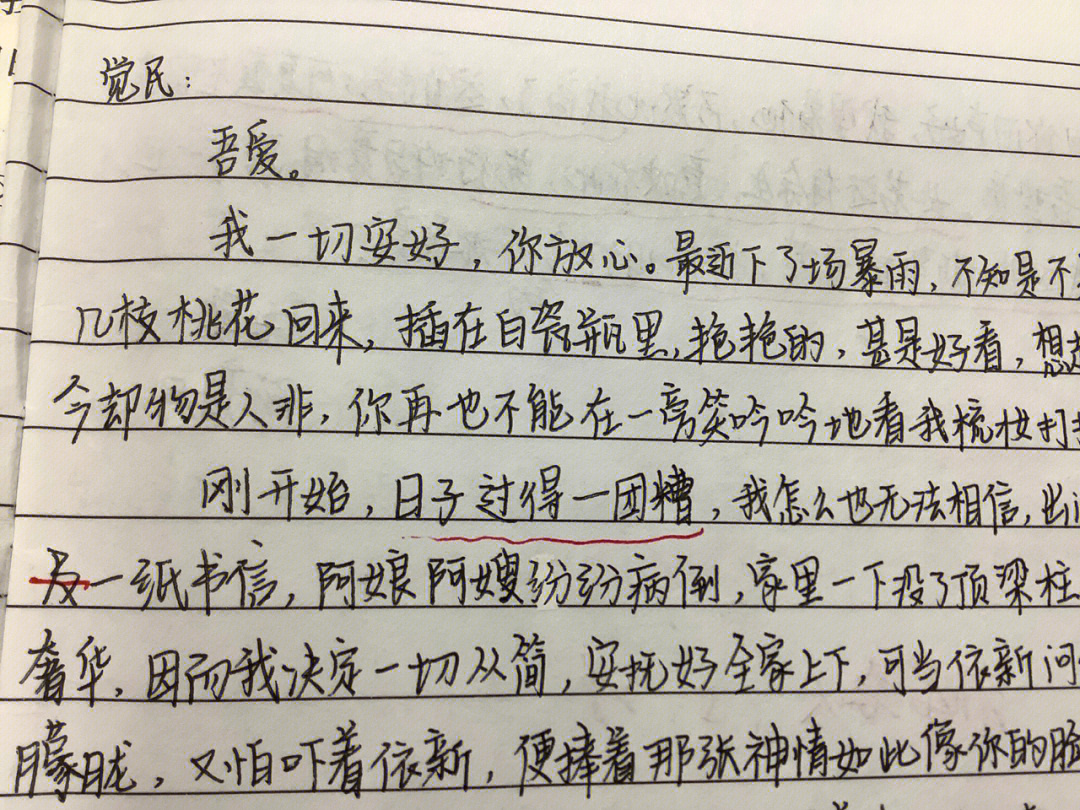 觉民:
吾爱。
我一切安好，你放心。最近下了场暴雨，不知是不
几枝桃花回来，插在白瓷瓶里，艳艳的，甚是好看，想起
今却物是人非，你再也不能在一旁笑吟吟地看我梳妆打
刚开始，日子过得一团糟，我怎么也无法相信，出
及一纸书信，阿娘阿嫂纷纷病倒，家里一下没了顶梁柱
奢华，因而我决定一切从简，安抚好全家上下，可当依新问
朦胧，又怕吓着依新，便捧着那张神情如此像你的脸